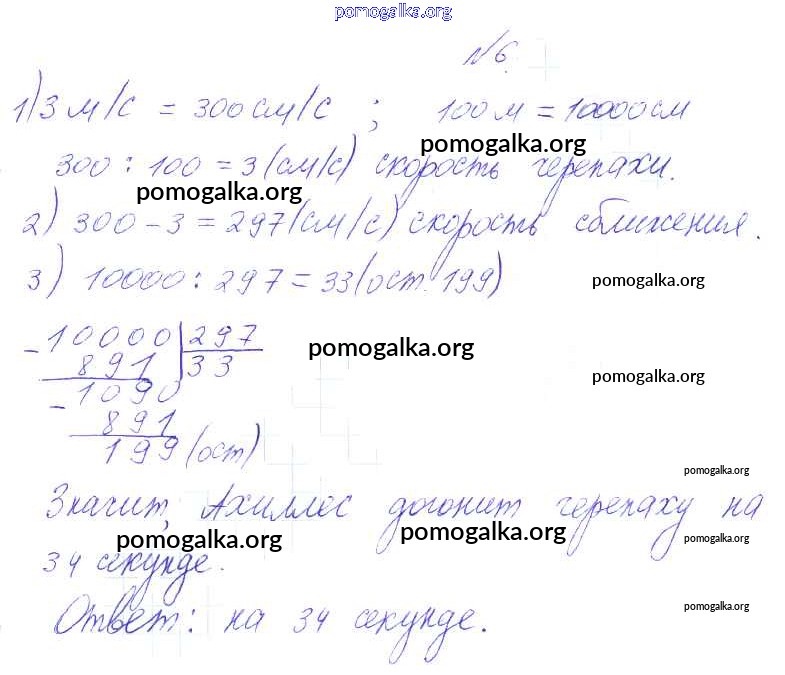 pomogalka.org
№6.
1) 3 м/с = 300 см/с ; 100 м = 10000 см
pomogalka.org
300 : 100 = 3 (см/с) скорость черепахи.
pomogalka.org
2) 300 - 3 = 297 (см/с) скорость сближения.
3) 10000 : 297 = 33 (ост. 199)
pomogalka.org
- 10000 | 297
891 | 33
pomogalka.org
- 1090
pomogalka.org
891
199 (ост)
pomogalka.org
Значит, Ахиллес догонит черепаху на
pomogalka.org pomogalka.org pomogalka.org
34 секунде.
pomogalka.org
Ответ: на 34 секунде.